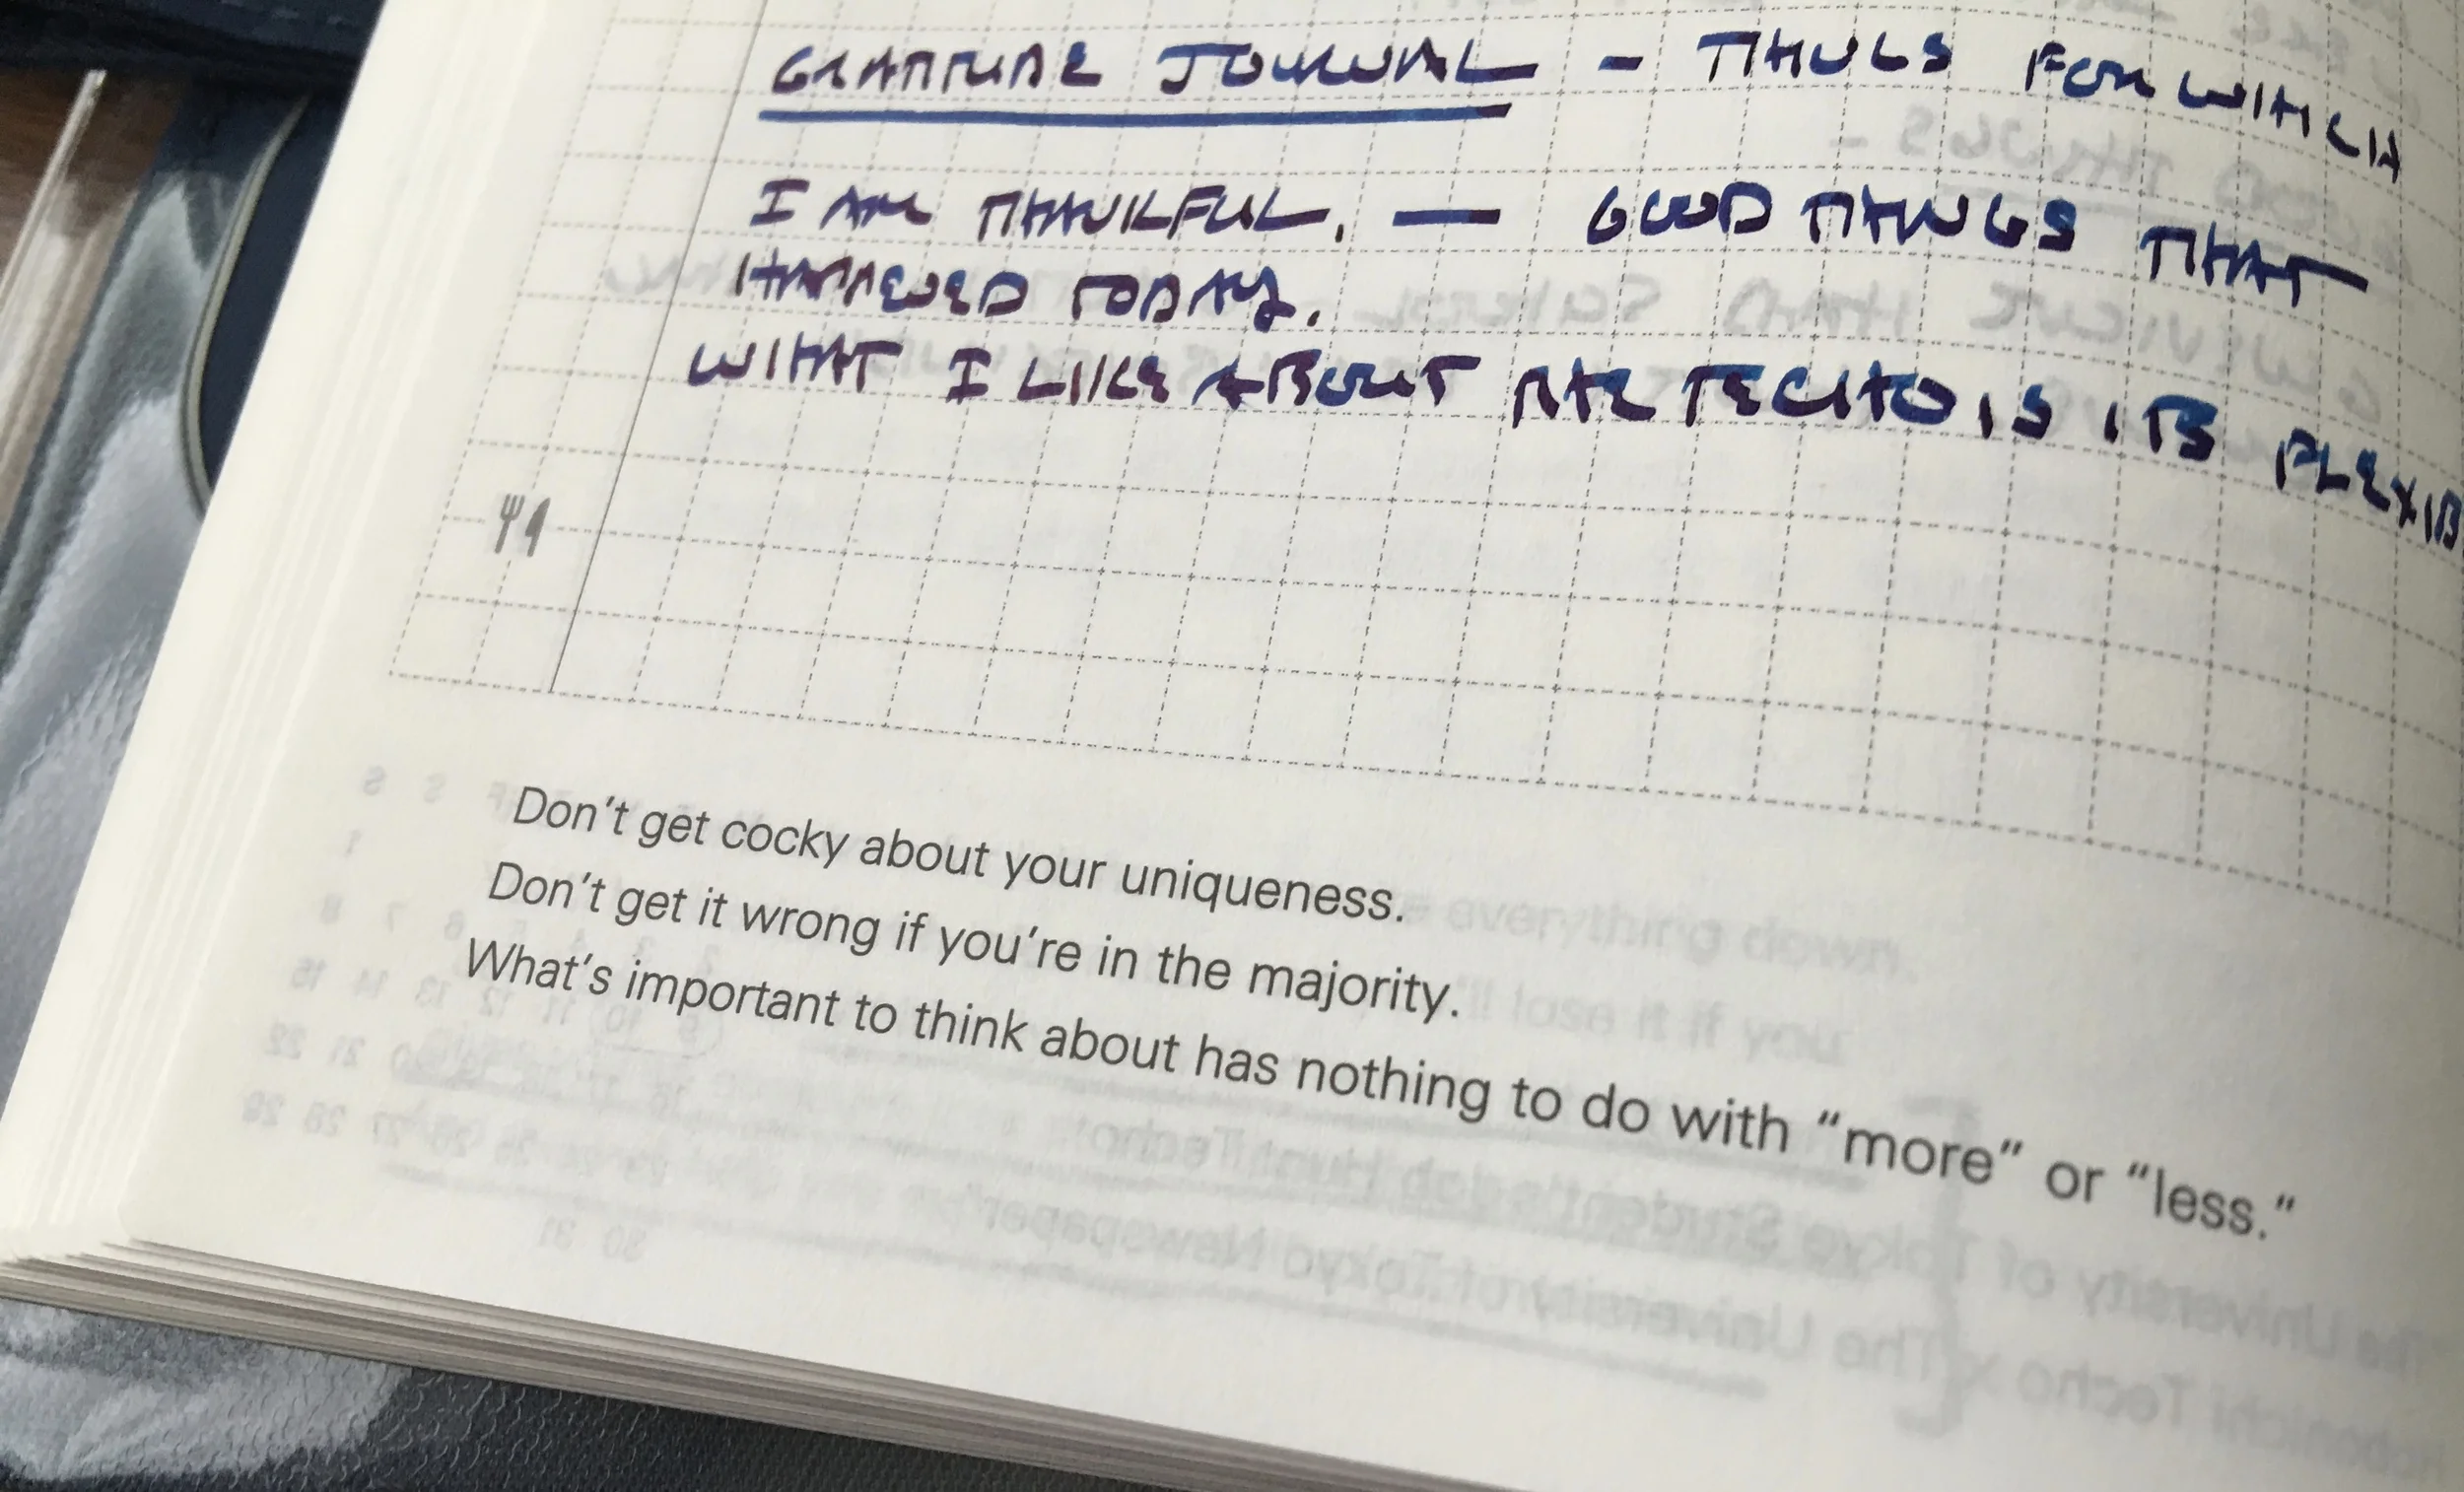 GRATITUDE JOURNAL - THINGS FOR WHICH
I AM THANKFUL. — GOOD THINGS THAT
HAPPENED TODAY.
WHAT I LIKE ABOUT THE TECHO IS ITS FLEXIB
Don't get cocky about your uniqueness.
Don't get it wrong if you're in the majority.
What's important to think about has nothing to do with “more” or “less.”